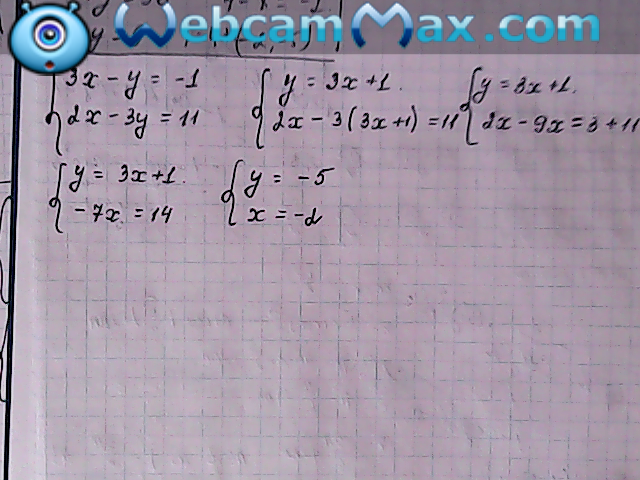 WebcamMax.com
3x - y = -1
2x - 3y = 11
y = 3x + 1.
2x - 3(3x+1) = 11
y = 3x + 1.
2x - 9x = 3 + 11
y = 3x + 1.
-7x = 14
y = -5
x = -2